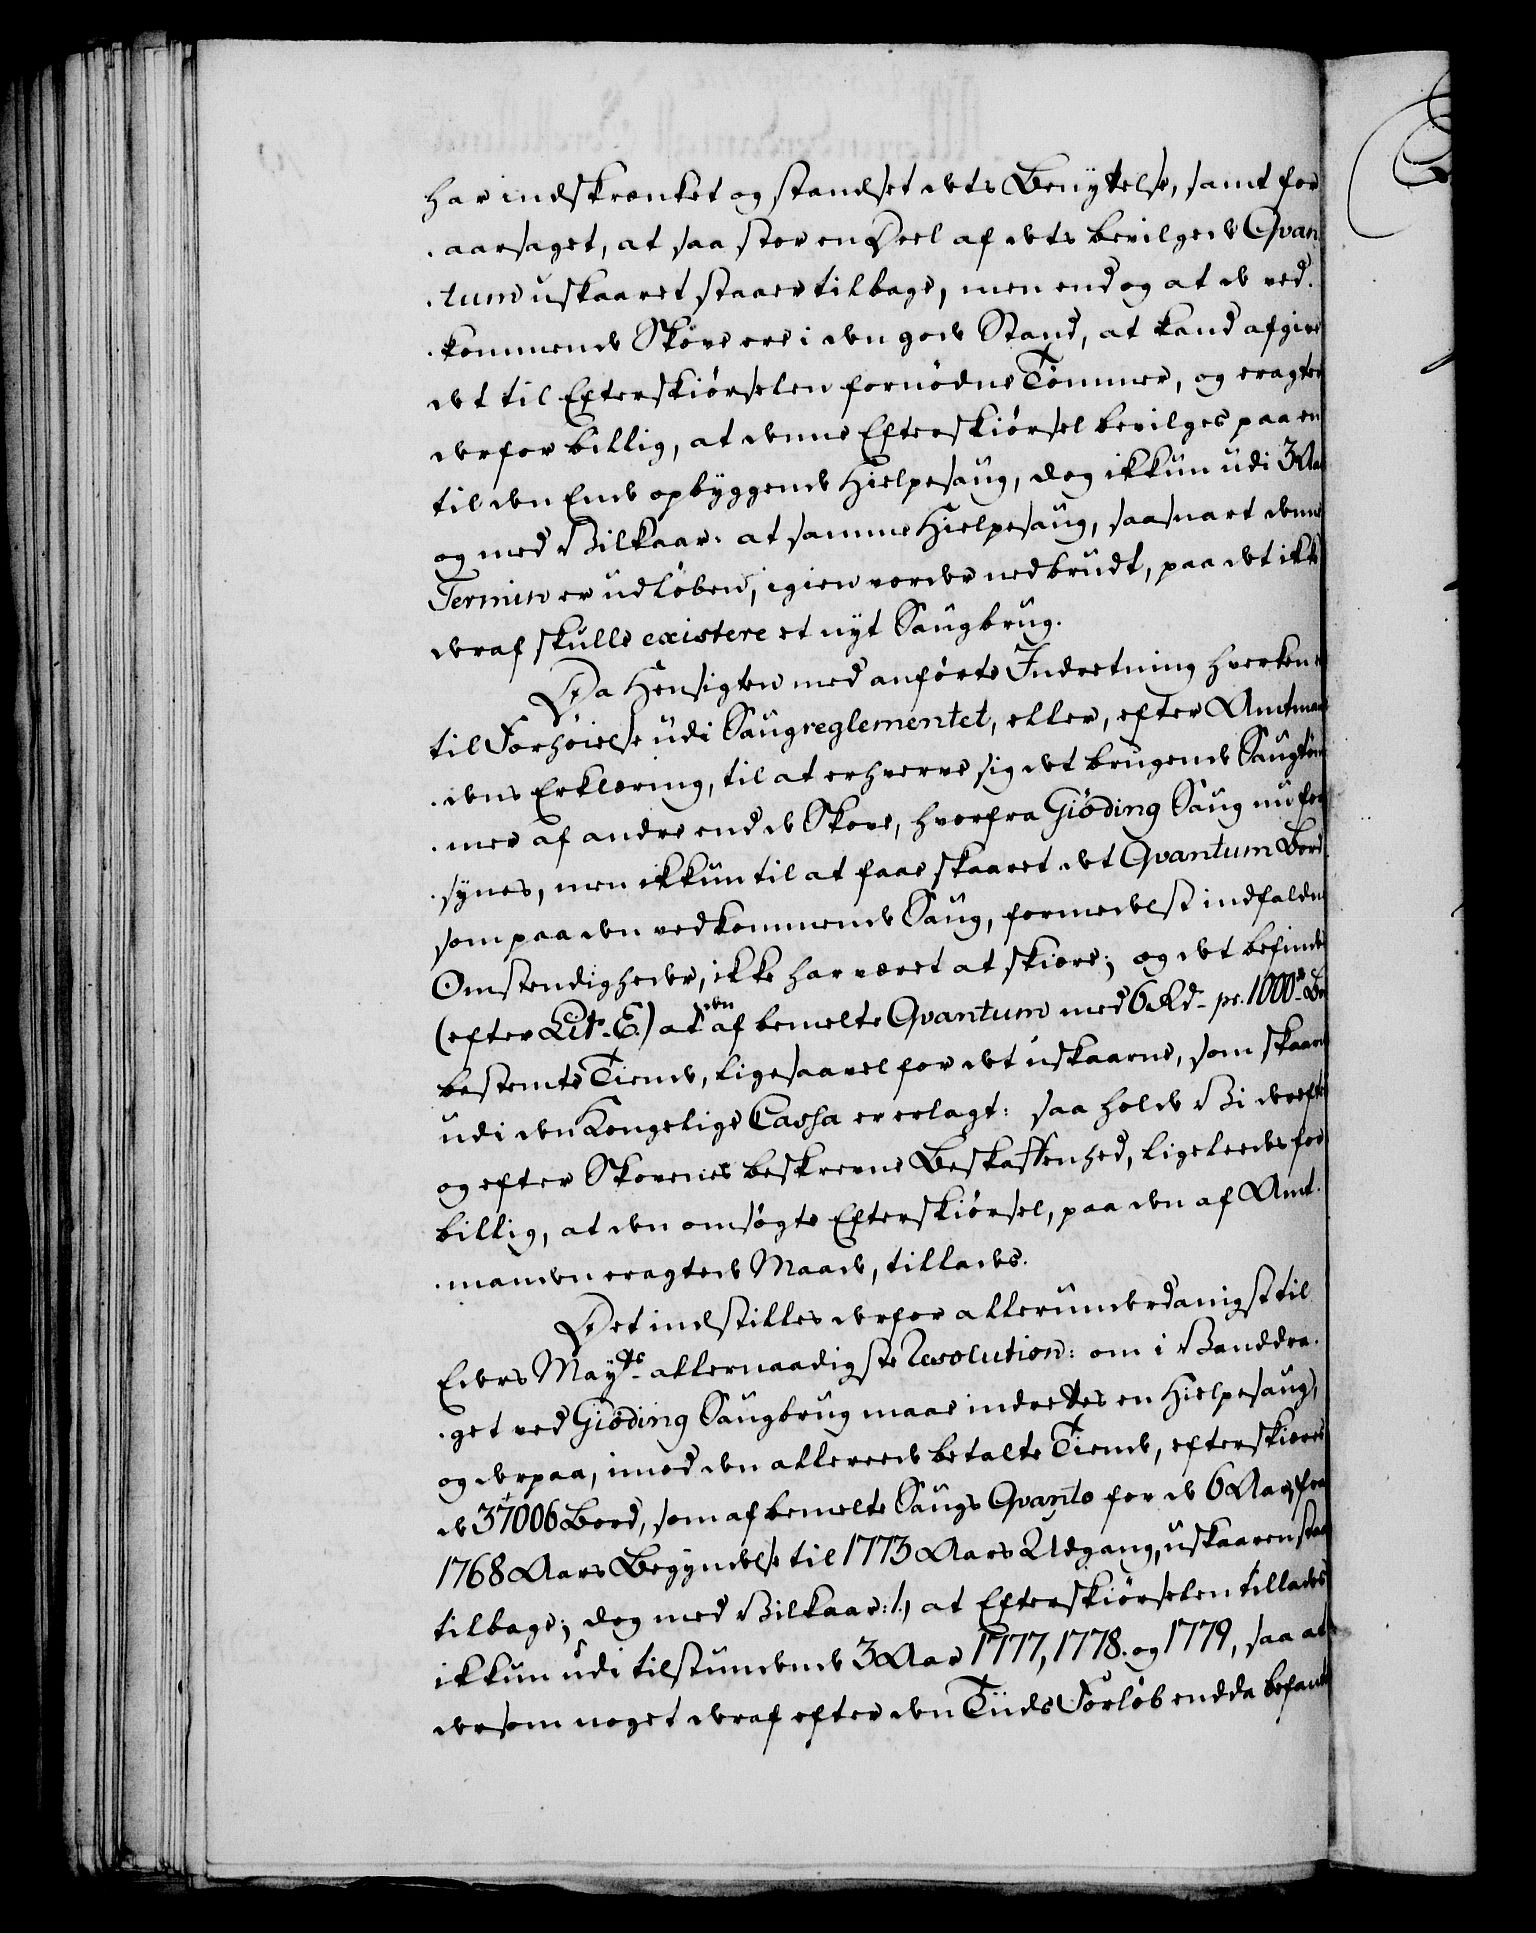 har indskrænket og standset dets Benyttelse, samt for
aarsaget, at saa stor en Deel af dets bevilgede Qvan
tum uskaaret staaer tilbage, men end og at de ved
kommende Skove ere i den gode Stand, at kand afgive
det til Efterskiørselen fornødne Tømmer, og eragter
derfor billig, at denne Efterskiørsel bevilges paa en
til den Ende opbyggende Hielpesaug, dog ikkun udi 3 Aar
og med Vilkaar: at samme Hielpesaug, saasnart denne
Termin er udløben, igien vorder nedbrudt, paa det ikke
deraf skulle existere et nyt Saugbrug.
Da Hensigten med anførte Indretning hverken er
til Forhøielse udi Saugreglementet, eller, efter Amtman
dens Erklæring, til at erhverve sig det brugende Saugtøm
mer af andre end de Skove, hvorfra Giöding Saug nu for
synes, men ikkun til at faae skaaret det Qvantum Bord
som paa den vedkommende Saug, formedelst indfaldne
Omstendigheder, ikke har været at skiære; og det befindes
(efter Litr. E.) at den af bemelte Qvantum med 6 Rd. pr. 1000de Bord
bestemte Tiende, ligesaavel for det uskaarne, som skaarne
udi den Kongelige Cassa er erlagt: saa holde Vi derefter
og efter Skovenes beskrevne Beskaffenhed, ligeledes for
billig, at den omsøgte Efterskiørsel, paa den af Amt
manden eragtede Maade, tillades.
Det indstilles derfor allerunderdanigst til
Eders Mayts allernaadigste Resolution: om i Vanddra
get ved Giöding Saugbrug maae indrettes en Hielpesaug,
og derpaa, imod den allereede betalte Tiende, efterskiæres
de 37006 Bord, som af bemelte Saugs Qvanto for de 6 Aar, fra
1768 Aars Begyndelse til 1773 Aars Udgang, uskaaren staaer
tilbage; dog med Vilkaar: 1.) at Efterskiørselen tillades
ikkun udi tilstundende 3 Aar 1777, 1778. og 1779, saa at
dersom noget deraf efter den Tiids Forløb endda befandtes